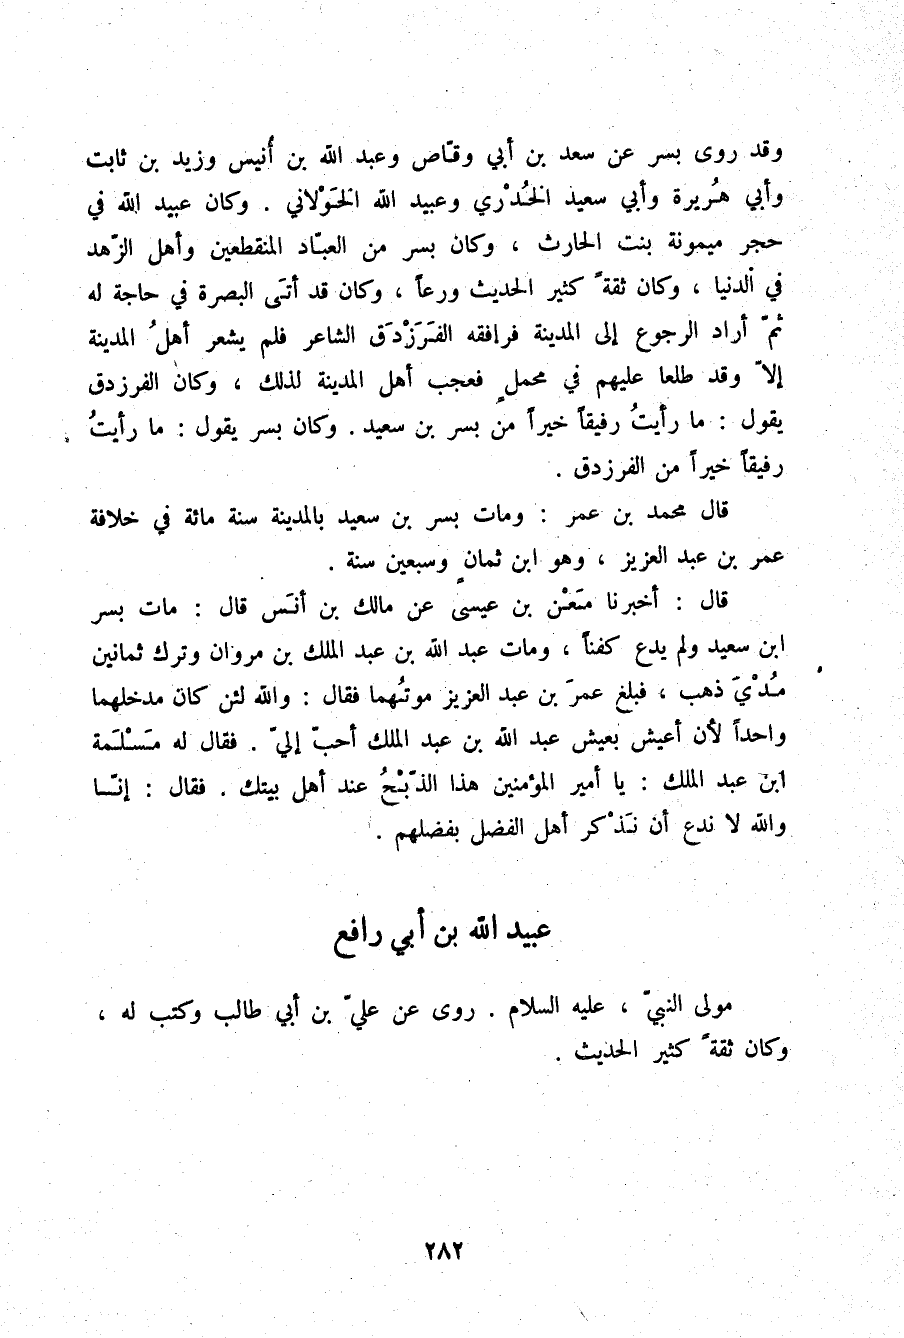 وقد روى بسر عن سعد بن أبي وقّاص وعبد الله بن أُنيس وزيد بن ثابت
وأبي هُريرة وأبي سعيد الخُدْري وعبيد الله الخَوْلاني . وكان عبيد الله في
حجر ميمونة بنت الحارث ، وكان بسر من العبّاد المنقطعين وأهل الزّهد
في الدنيا ، وكان ثقةً كثير الحديث ورعاً ، وكان قد أتَى البصرة في حاجة له
ثمّ أراد الرجوع إلى المدينة فرافقه الفَرَزْدَق الشاعر فلم يشعر أهلُ المدينة
إلاّ وقد طلعا عليهم في محملٍ فعجب أهل المدينة لذلك ، وكان الفرزدق
يقول : ما رأيتُ رفيقاً خيراً من بسر بن سعيد . وكان بسر يقول : ما رأيتُ
رفيقاً خيراً من الفرزدق .
قال محمد بن عمر : ومات بسر بن سعيد بالمدينة سنة مائة في خلافة
عمر بن عبد العزيز ، وهو ابن ثمانٍ وسبعين سنة .
قال : أخبرنا مَعْن بن عيسى عن مالك بن أنَس قال : مات بسر
ابن سعيد ولم يدع كفناً ، ومات عبد الله بن عبد الملك بن مروان وترك ثمانين
مُدْيَ ذهب ، فبلغ عمرَ بن عبد العزيز موتُهما فقال : والله لئن كان مدخلهما
واحداً لأن أعيش بعيش عبد الله بن عبد الملك أحبّ إليّ . فقال له مَسْلَمة
ابن عبد الملك : يا أمير المؤمنين هذا الذّبْحُ عند أهل بيتك . فقال : إنّا
والله لا ندع أن نَذْكر أهل الفضل بفضلهم .
عبيد الله بن أبي رافع
مولى النبيّ ، عليه السلام . روى عن عليّ بن أبي طالب وكتب له ،
وكان ثقةً كثير الحديث .
٢٨٢